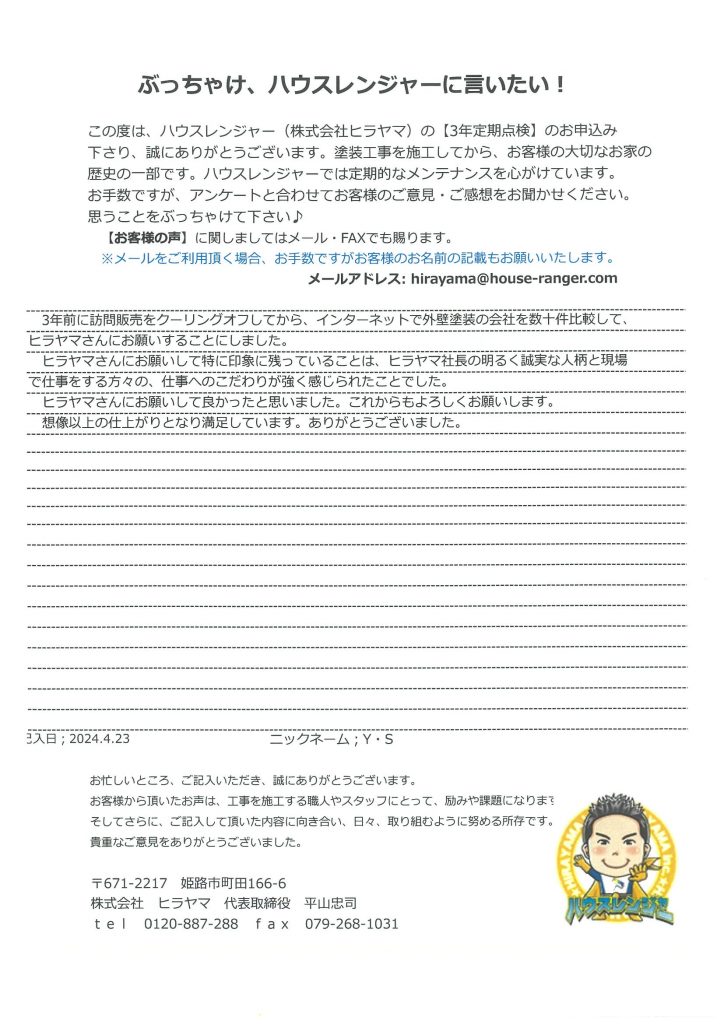 ぶっちゃけ、ハウスレンジャーに言いたい！
この度は、ハウスレンジャー（株式会社ヒラヤマ）の【3年定期点検】のお申込み
下さり、誠にありがとうございます。塗装工事を施工してから、お客様の大切なお家の
歴史の一部です。ハウスレンジャーでは定期的なメンテナンスを心がけています。
お手数ですが、アンケートと合わせてお客様のご意見・ご感想をお聞かせください。
思うことをぶっちゃけて下さい♪
【お客様の声】に関しましてはメール・FAXでも賜ります。
※メールをご利用頂く場合、お手数ですがお客様のお名前の記載もお願いいたします。
メールアドレス: hirayama@house-ranger.com
3年前に訪問販売をクーリングオフしてから、インターネットで外壁塗装の会社を数十件比較して、
ヒラヤマさんにお願いすることにしました。
ヒラヤマさんにお願いして特に印象に残っていることは、ヒラヤマ社長の明るく誠実な人柄と現場
で仕事をする方々の、仕事へのこだわりが強く感じられたことでした。
ヒラヤマさんにお願いして良かったと思いました。これからもよろしくお願いします。
想像以上の仕上がりとなり満足しています。ありがとうございました。
記入日；2024.4.23 ニックネーム；Y・S
お忙しいところ、ご記入いただき、誠にありがとうございます。
お客様から頂いたお声は、工事を施工する職人やスタッフにとって、励みや課題になります
そしてさらに、ご記入して頂いた内容に向き合い、日々、取り組むように努める所存です。
貴重なご意見をありがとうございました。
〒671-2217 姫路市町田166-6
株式会社 ヒラヤマ 代表取締役 平山忠司
ｔｅｌ 0120-887-288 ｆａｘ 079-268-1031
HIRAYAMA
ハウスレンジャー